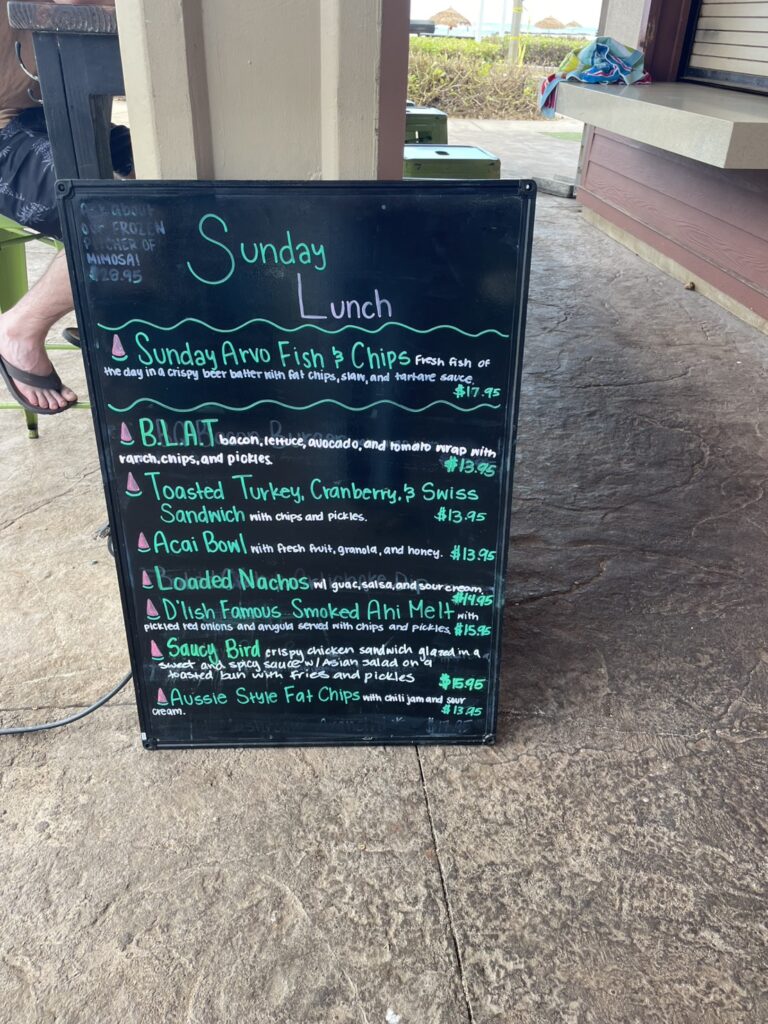 Ask about
our FROZEN
PITCHER OF
MIMOSA!
$28.95
Sunday
Lunch
Sunday Arvo Fish & Chips fresh fish of
the day in a crispy beer batter with fat chips, slaw, and tartare sauce.
$17.95
B.L.A.T bacon, lettuce, avocado, and tomato wrap with
ranch, chips, and pickles.
$13.95
Toasted Turkey, Cranberry, & Swiss
Sandwich with chips and pickles. $13.95
Acai Bowl with fresh fruit, granola, and honey. $13.95
Loaded Nachos w/ guac, salsa, and sour cream.
$14.95
D'lish Famous Smoked Ahi Melt with
pickled red onions and arugula served with chips and pickles. $15.95
Saucy Bird crispy chicken sandwich glazed in a
sweet and spicy sauce w/ Asian salad on a
toasted bun with fries and pickles $15.95
Aussie Style Fat Chips with chili jam and sour
cream. $13.95